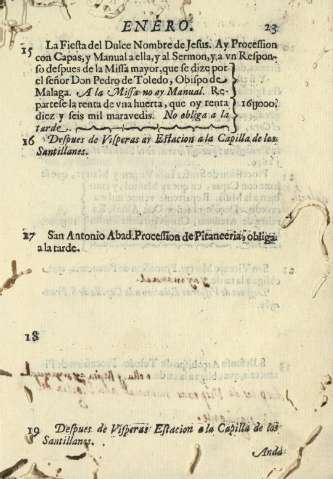 ENERO. 23
15 La Fiesta del Dulce Nombre de Jesus. Ay Procession
con Capas, y Manual a ella, y al Sermon, y a vn Respon-
so despues de la Missa mayor, que se dize por
el señor Don Pedro de Toledo, Obispo de
Malaga. A la Missa no ay Manual. Re-
partese la renta de vna huerta, que oy renta 16y000.
diez y seis mil maravedis. No obliga a la
tarde.
16 Despues de Visperas ay Estacion a la Capilla de los
Santillanes.
17 San Antonio Abad. Procession de Pitanceria, obliga
a la tarde.
18
19 Despues de Visperas Estacion a la Capilla de los
Santillanes.
Anda